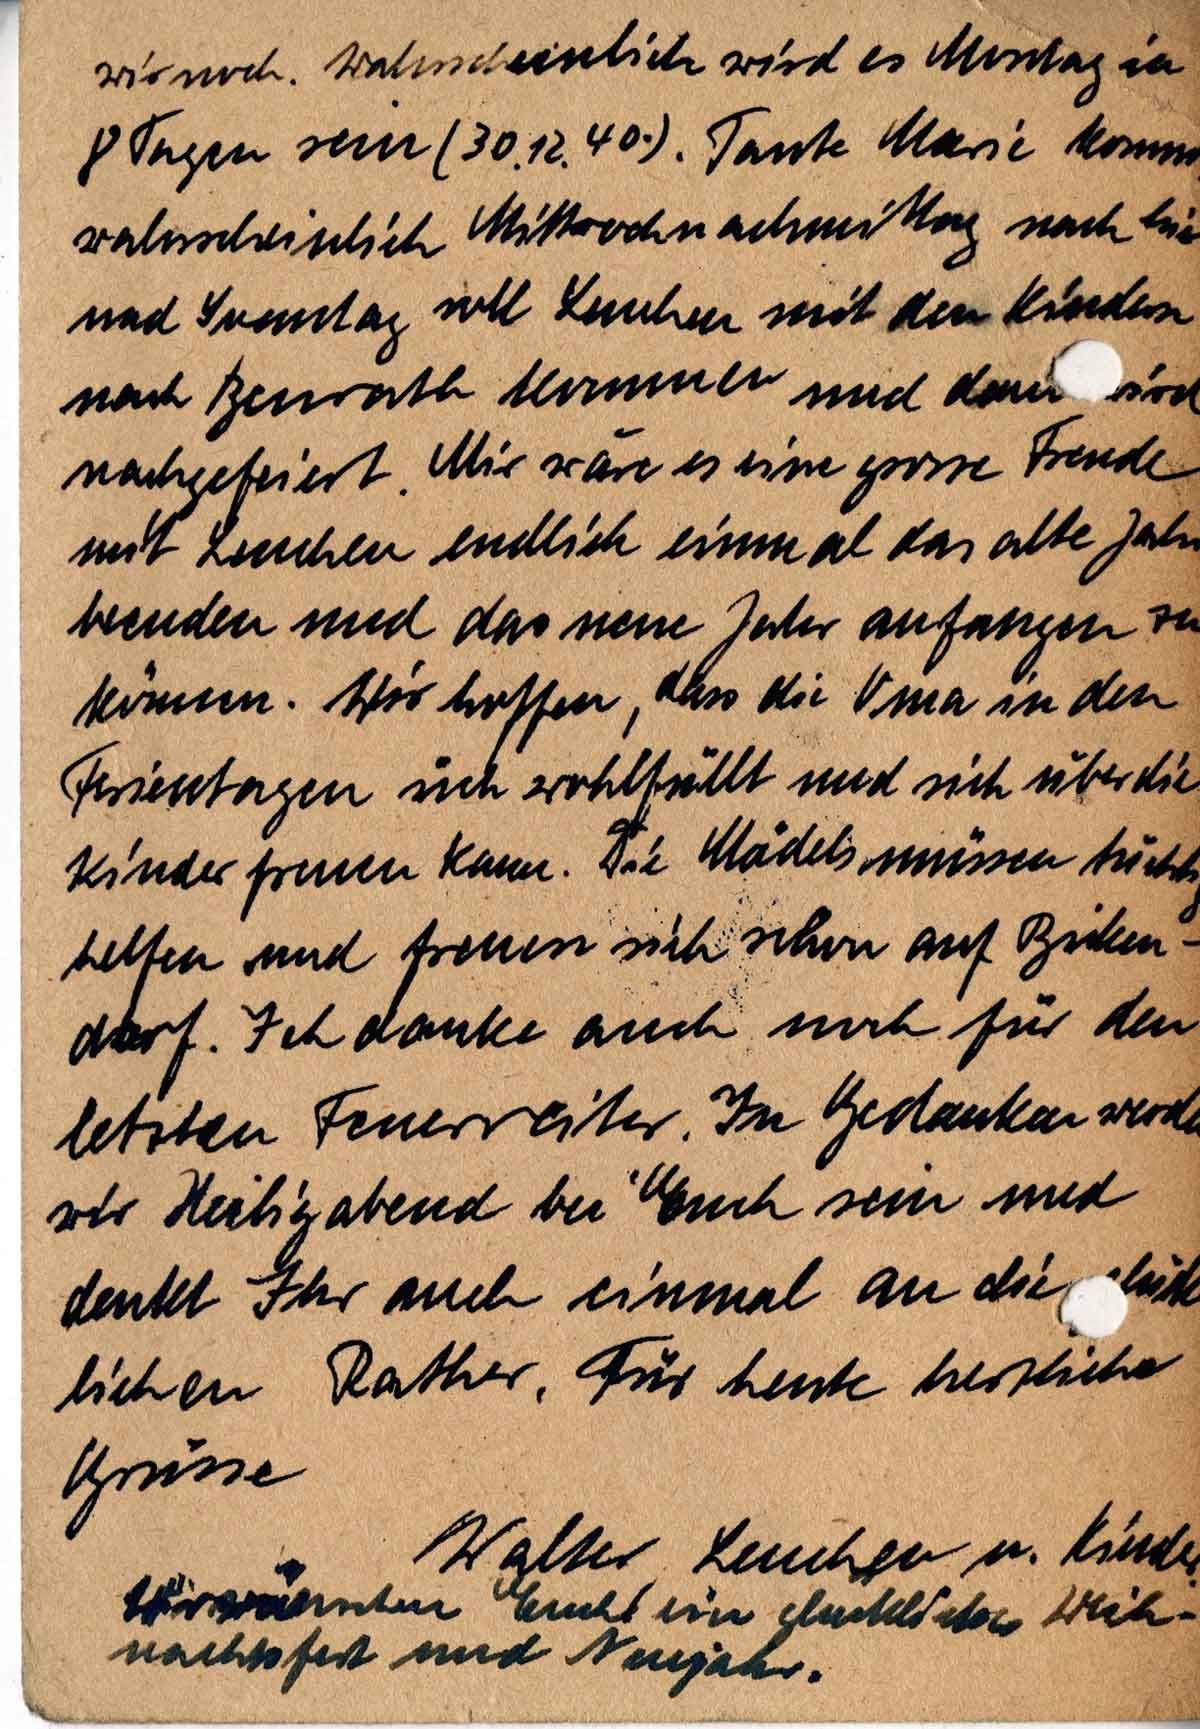 wir noch. Wahrscheinlich wird es Montag in
8 Tagen sein (30.12.40.). Tante Marie komm
wahrscheinlich Mittwochnachmittag nach hie
und Sonntag soll Lenchen mit den Kindern
nach Benrath kommen und dann wird
nachgefeiert. Mir wäre es eine grosse Freude
mit Lenchen endlich einmal das alte Jahr
beenden und das neue Jahr anfangen zu
können. Wir hoffen, dass die Oma in den
Ferientagen sich wohlfühlt und sich über die
Kinder freuen kann. Die Mädels müssen tüchtig
helfen und freuen sich schon auf Bicken-
dorf. Ich danke auch noch für den
letzten Feuerreiter. In Gedanken werde
wir Heiligabend bei Euch sein und
denkt Ihr auch einmal an die glück
lichen Rather. Für heute herzliche
Grüsse
Walter Lenchen u. Kinder
Wir wünschen Euch ein glückliches Weih-
nachtsfest und Neujahr.